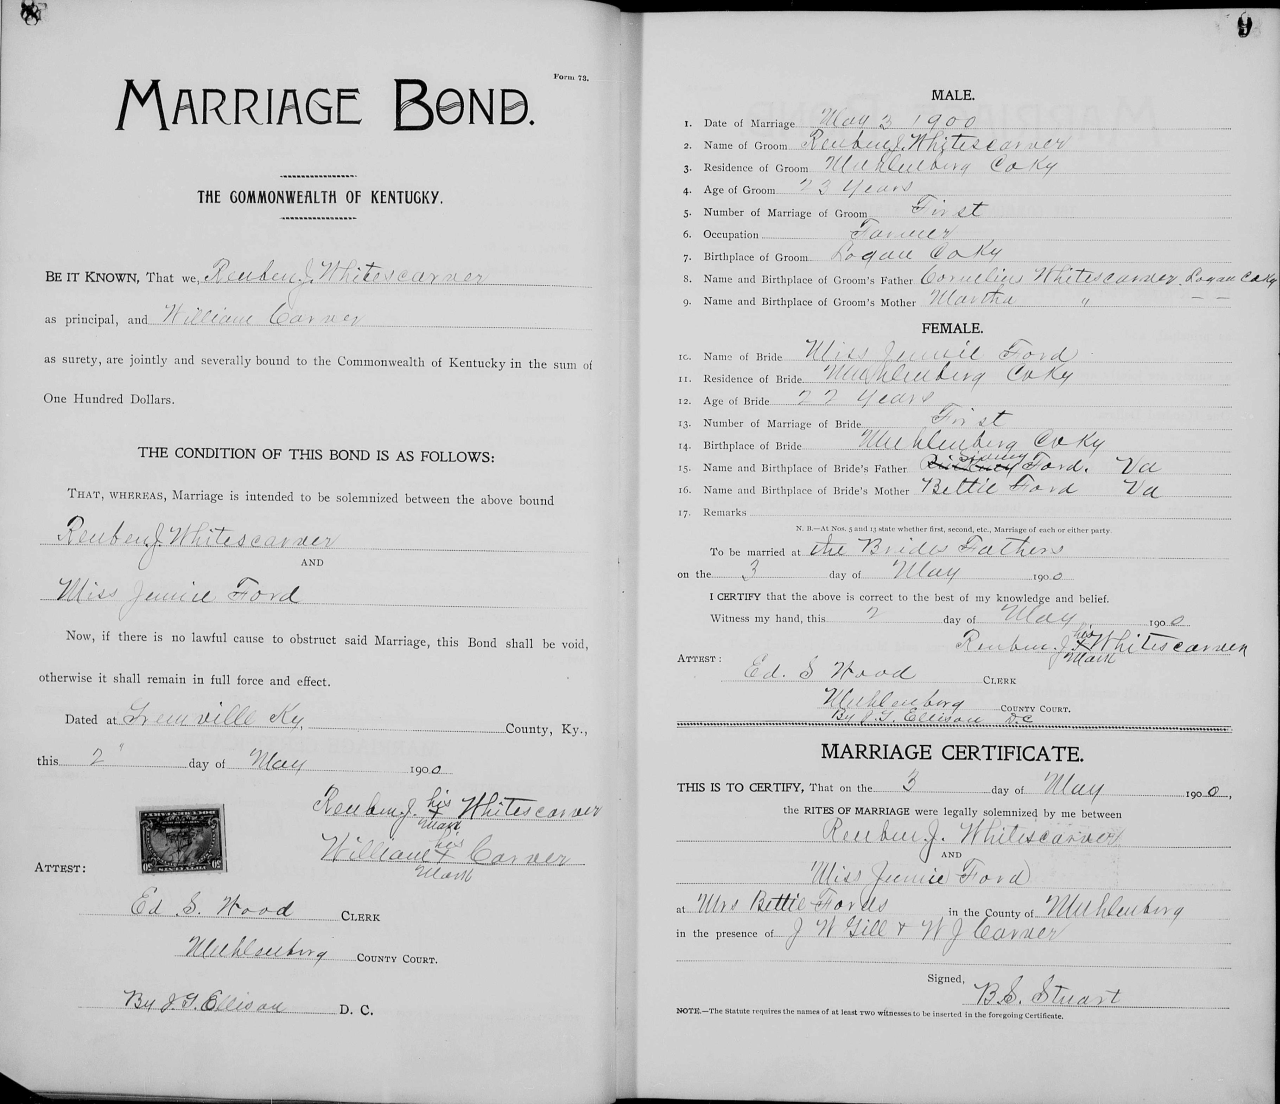 8
Form 73.
MARRIAGE BOND.
THE COMMONWEALTH OF KENTUCKY.
BE IT KNOWN, That we, Reuben J. Whitescarver
as principal, and William Carver
as surety, are jointly and severally bound to the Commonwealth of Kentucky in the sum of
One Hundred Dollars.
THE CONDITION OF THIS BOND IS AS FOLLOWS:
THAT, WHEREAS, Marriage is intended to be solemnized between the above bound
Reuben J. Whitescarver
AND
Miss Jennie Ford
Now, if there is no lawful cause to obstruct said Marriage, this Bond shall be void,
otherwise it shall remain in full force and effect.
Dated at Greenville Ky. County, Ky.,
this 2" day of May 1900
Reuben J. his x mark Whitescarver
William his x mark Carver
ATTEST:
Ed. S. Wood CLERK
Muhlenberg COUNTY COURT.
By J. G. Ellison D. C.
9
MALE.
1. Date of Marriage May 3 1900
2. Name of Groom Reuben J. Whitescarver
3. Residence of Groom Muhlenberg Co Ky
4. Age of Groom 23 Years
5. Number of Marriage of Groom First
6. Occupation Farmer
7. Birthplace of Groom Logan Co Ky
8. Name and Birthplace of Groom's Father Cornelius Whitescarver Logan Co Ky
9. Name and Birthplace of Groom's Mother Martha " — —
FEMALE.
10. Name of Bride Miss Jennie Ford
11. Residence of Bride Muhlenberg Co Ky
12. Age of Bride 22 Years
13. Number of Marriage of Bride First
14. Birthplace of Bride Muhlenberg Co Ky
15. Name and Birthplace of Bride's Father Sidney Ford. Va
16. Name and Birthplace of Bride's Mother Bettie Ford Va
17. Remarks
N. B.—At Nos. 5 and 13 state whether first, second, etc., Marriage of each or either party.
To be married at the Brides Fathers
on the 3 day of May 1900
I CERTIFY that the above is correct to the best of my knowledge and belief.
Witness my hand, this 2 day of May 1900
Reuben J. his x mark Whitescarver
ATTEST:
Ed. S Wood CLERK
Muhlenberg COUNTY COURT.
By J. G. Ellison D.C
MARRIAGE CERTIFICATE.
THIS IS TO CERTIFY, That on the 3 day of May 1900,
the RITES OF MARRIAGE were legally solemnized by me between
Reuben J. Whitescarver
AND
Miss Jennie Ford
at Mrs Bettie Fords in the County of Muhlenberg
in the presence of J W Gill + W J Carver
Signed,
B. S. Stuart
NOTE.—The Statute requires the names of at least two witnesses to be inserted in the foregoing Certificate.